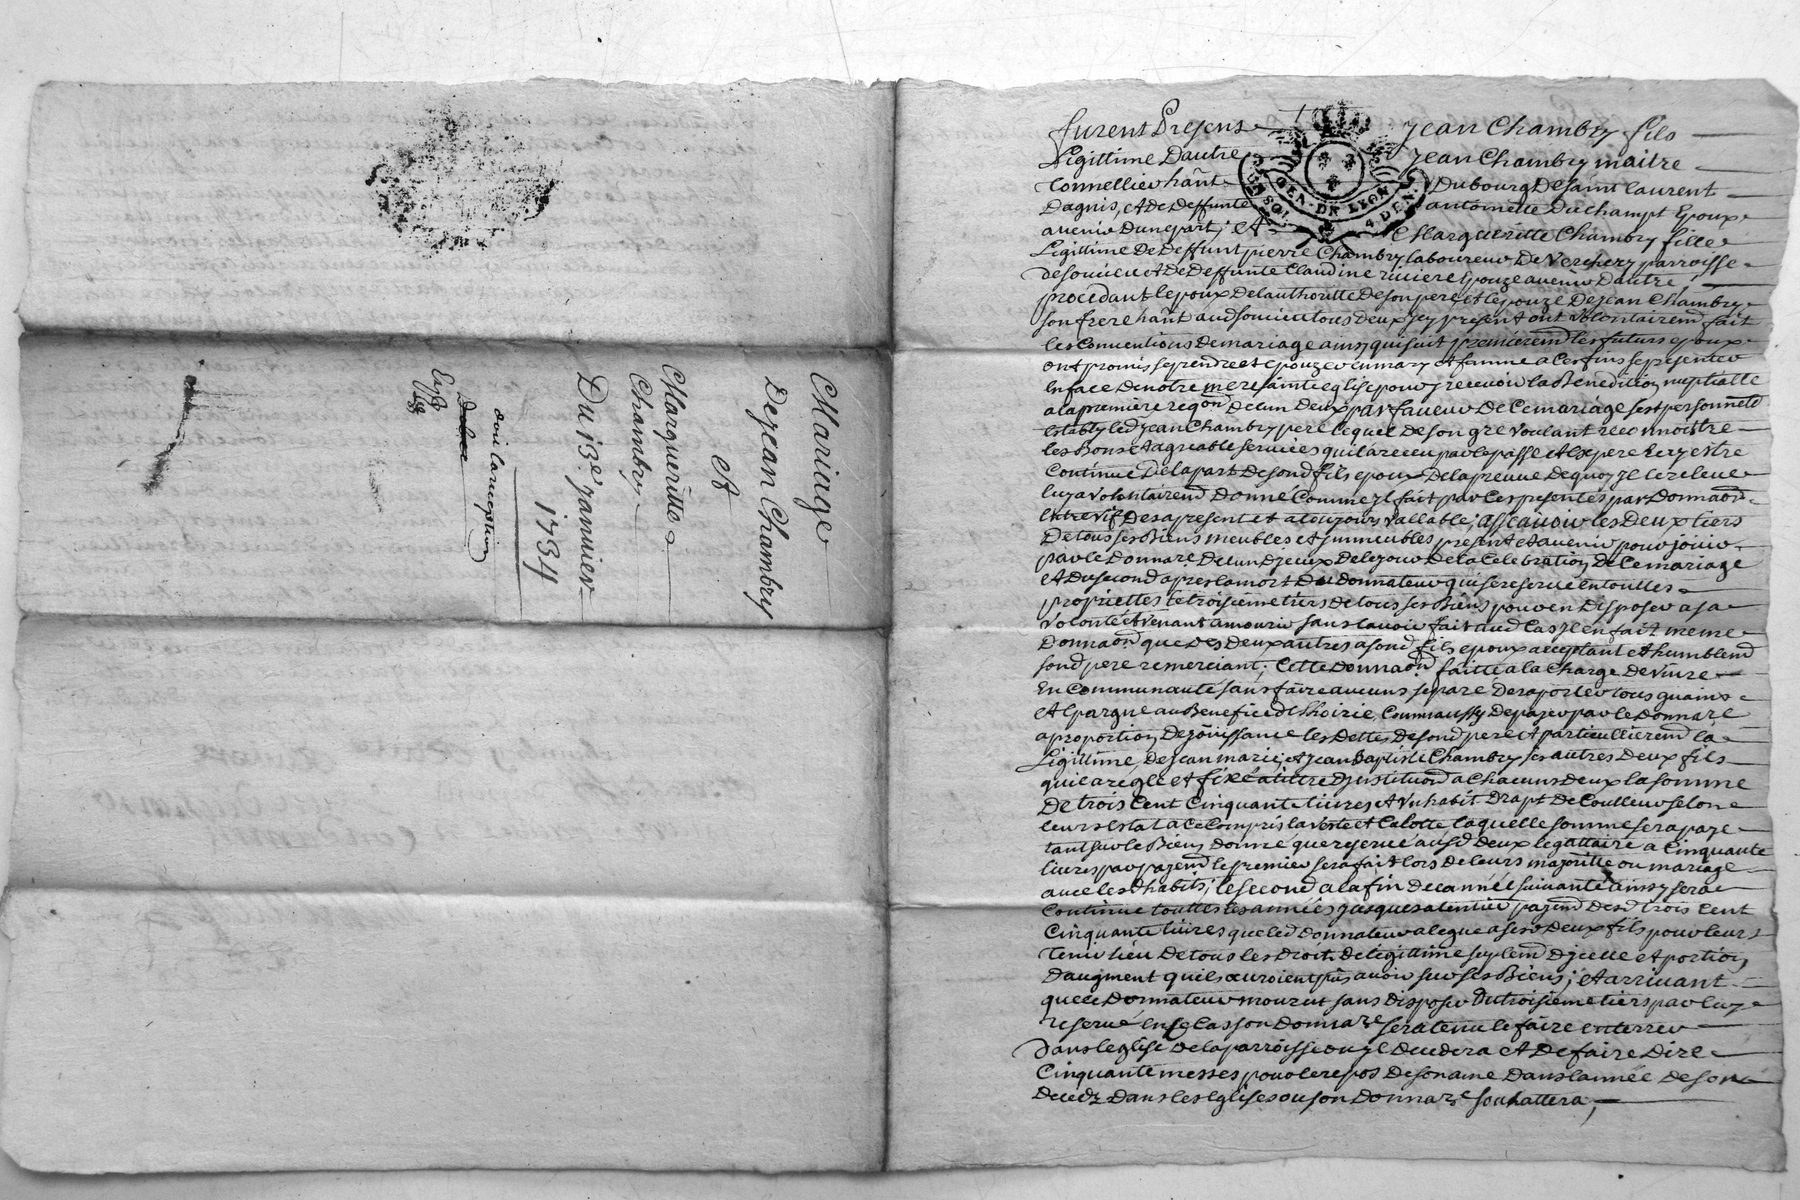 Mariage
De jean Chambry
et
Margueritte
Chambry
Du 13e janvier
1734
doit la reception
furent Presens Jean Chambry fils
Legittime Dautre Jean Chambry maitre
tonnellier hant Du bourg De saint laurent
Dagnis, et De Deffunte antoinette Duchampt Epoux
avenir Dunepart; et Marguerite Chambry fille
Legittime De Deffunt pierre Chambry laboureur De Verchery parroisse
de soucieu et De Deffunte Claudine riviere Epouze avenir Dautre,
procedant lepoux Delauthoritte De son pere et lepouze De jean Chambry
son frere hant aud soucieu tous deux jcy present ont volontairemt fait
les Conventions De mariage ainsy quisuit premieremt les futurs epoux
ont promis se prendre et epouzer en mary et famme a ces fins se presenter
En face De notre mere sainte eglise pour y recevoir la Benediction nuptialle
a la premiere reqon De lun Deux par faveur De Ce mariage sest personnelt
estably led jean Chambry pere lequel De son gre voulant reconnoistre
les Bons et agreable services quil a receu par le passe et Espere Ency estre
Continue De la part De sond fils epoux De la preuve De quoy jl le releve
luy a volontairemt Donne Comme jl fait par les presentes par Donnaon
Entre vif Des a present et a toujours vallable; asscavoir les Deux tiers
De tous ses Biens meubles et jmmeubles present et avenir pour jouir
par le Donnare De lun Djceux De le jour De la Celebration De Ce mariage
et Du second apres la mort Du donnateur qui se reserve en touttes
proprietes le troisieme tiers De tous ses Biens pour en Disposer a sa
volonte et venant a mourir sans lavoir fait aud Cas jl en fait meme
Donnaon que Des Deux autres a sond fils epoux acceptant et humblemt
sond pere remerciant; Cette Donnaon faitte a la Charge De vivre
En Communaute sans faire aucuns separe De raporter tous guains
et Epargne au Benefice De lhoirie, Comm aussy De payer par le Donnare
a proportion De jouissance les Dettes De sond pere et particullieremt la
Legittime De Jean marie, et jean Baptiste Chambry ses autres Deux fils
quil a regle et fixé a titre Djnstitution a Chacuns Deux la somme
De trois Cent Cinquante livres et vn habit Drapt De Coulleur selon
leurs Estat a Ce Compris la veste et Calotte, laquelle somme sera paye
tant sur le Biens donne que reserve ausd Deux legattaire a Cinquante
livres par payemt le premier sera fait lors De leurs majoritte ou mariage
avec lesd habits; le second a la fin De lannée suivante et ainsy sera
Continue touttes les années jusques a lentier payemt Desd trois Cent
Cinquante livres que led Donnateur a legue a sesd Deux fils pour leurs
tenir lieu De tous les Droit De legittime suplemt Djcelle et portion
Daugment quils auroient pus avoir sur ses Biens; et arrivant
que le Donnateur mourut sans Disposer Du troisieme tiers par luy
reservé en Ce Cas son Donnare sera tenu le faire enterrer
Dans leglise De la parroisse ou jl Decedera et De faire Dire
Cinquante messes pour le repos De son ame Dans lannée De son
Decedz Dans les Eglises ou son Donnare souhattera,